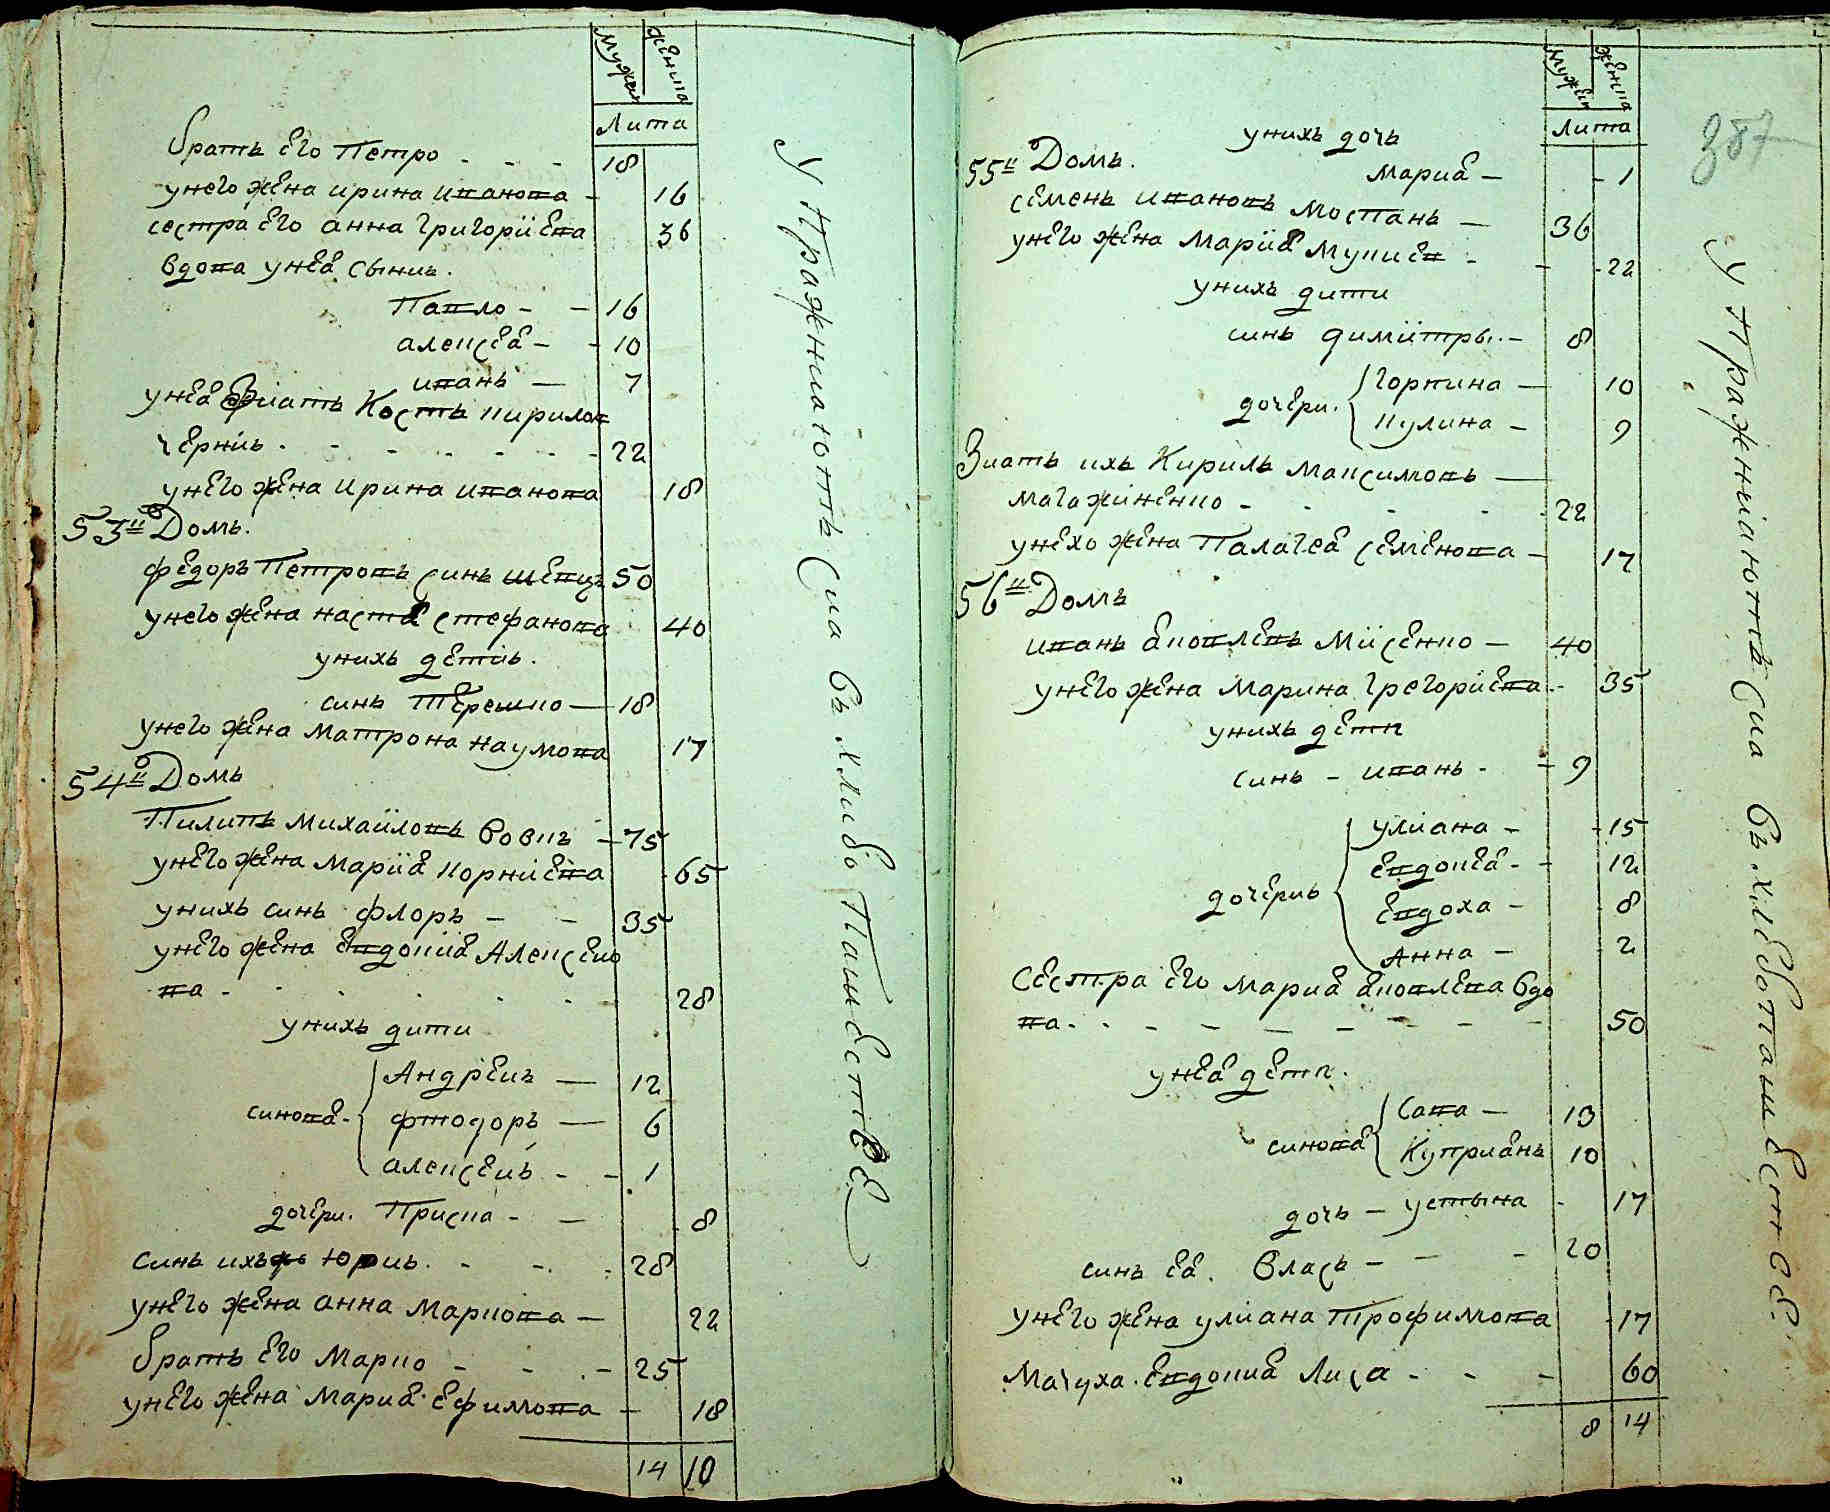 мужеи женина
Лита
братъ его Петро - - - 18
унего жена ирина иванова - 16
сестра его анна Григориева 36
вдова унея сынивъ.
Павло - - 16
алексея - - 10
иванъ - 7
унея зиать Кость кирилов
черник . - - - - 22
унего жена ирина иванова 18
53и Домъ.
федоръ Петровъ синъ швецъ 50
унего жена настя стефанова 40
унихъ детиь.
синъ Терешко - 18
унего жена матрона наумова 17
54и Домъ
Пилипъ михайловъ вовкъ - 75
унего жена Мария корниева - 65
унихъ синъ флоръ - - 35
унего жена евдокия Алексеио
ва - - - - - 28
унихъ дити
синовя. Андреиъ - 12
фтодоръ - 6
алексеиъ - - 1
дочери. Приска - - 8
синъ ихъ юриъ. - - - 28
унего жена анна маркова - 22
братъ его марко - - - 25
унего жена мария ефимова - 18
14 10
Упражниаютъ сиа въ хлибопашестве
мужеи женина
Лита
387
унихъ дочъ
мария - - 1
55и Домъ.
семенъ ивановъ моспанъ - 36
унего жена мария мусиев - - - 22
унихъ дити
синъ димитры. - 8
дочери. Горпина - 10
кулина - 9
Зиать ихъ Кирилъ максимовъ -
магажиненко - - - - 22
унехо жена Палагея семенова - 17
56и Домъ
иванъ яковлевъ мисенко - 40
унего жена марина Грегориева - 35
унихъ дети
синъ - иванъ - - 9
дочериъ улиана - - 15
евдокея - - 12
евдоха - - 8
Анна - - 2
Сестра его мария яковлева вдо
ва. - - - - - - - 50
унея дети.
синовя Сава - 13
Куприянъ 10
дочъ - устына - 17
синъ ея. Власъ - - - 20
унего жена улиана Трофимова - 17
мачуха. евдокия Лиса - - - 60
8 14
Упражниаютъ сиа въ хлебопашестве.